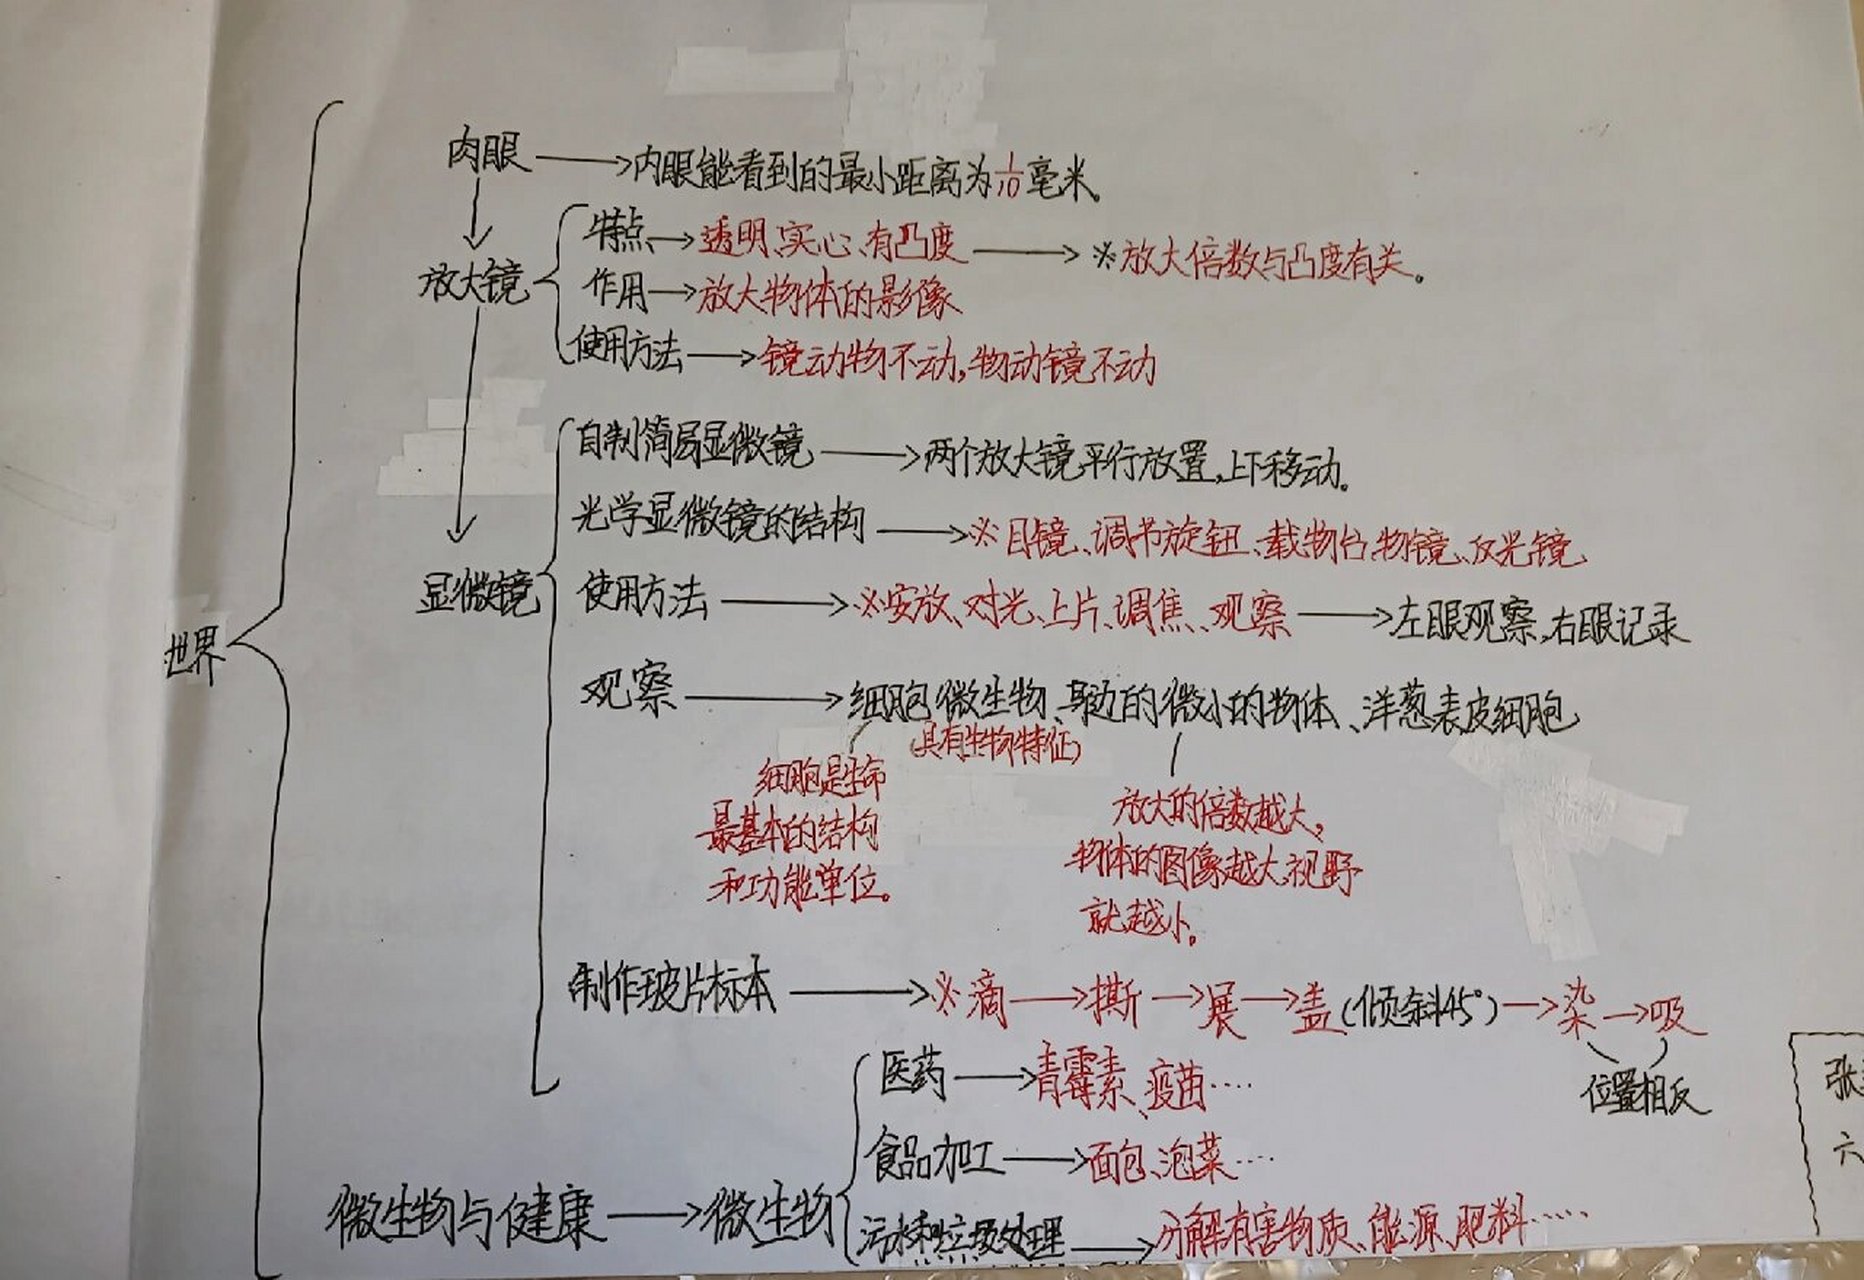 肉眼→肉眼能看到的最小距离为1/10毫米。
特点→透明、实心、有凸度→※放大倍数与凸度有关。
放大镜
作用→放大物体的影像
使用方法→镜动物不动,物动镜不动
自制简易显微镜→两个放大镜平行放置,上下移动。
光学显微镜的结构→※目镜、调节旋钮、载物台、物镜、反光镜
显微镜
使用方法→※安放、对光、上片、调焦、观察→左眼观察,右眼记录
世界
观察→细胞、微生物、身边的微小的物体、洋葱表皮细胞
(具有生物特征)
细胞是生命
最基本的结构
和功能单位。
放大的倍数越大,
物体的图像越大,视野
就越小。
制作玻片标本→※滴→撕→展→盖(倾斜45°)→染→吸
位置相反
医药→青霉素、疫苗……
食品加工→面包、泡菜……
微生物与健康→微生物
污水和垃圾处理→分解有害物质、能源、肥料……
张
六